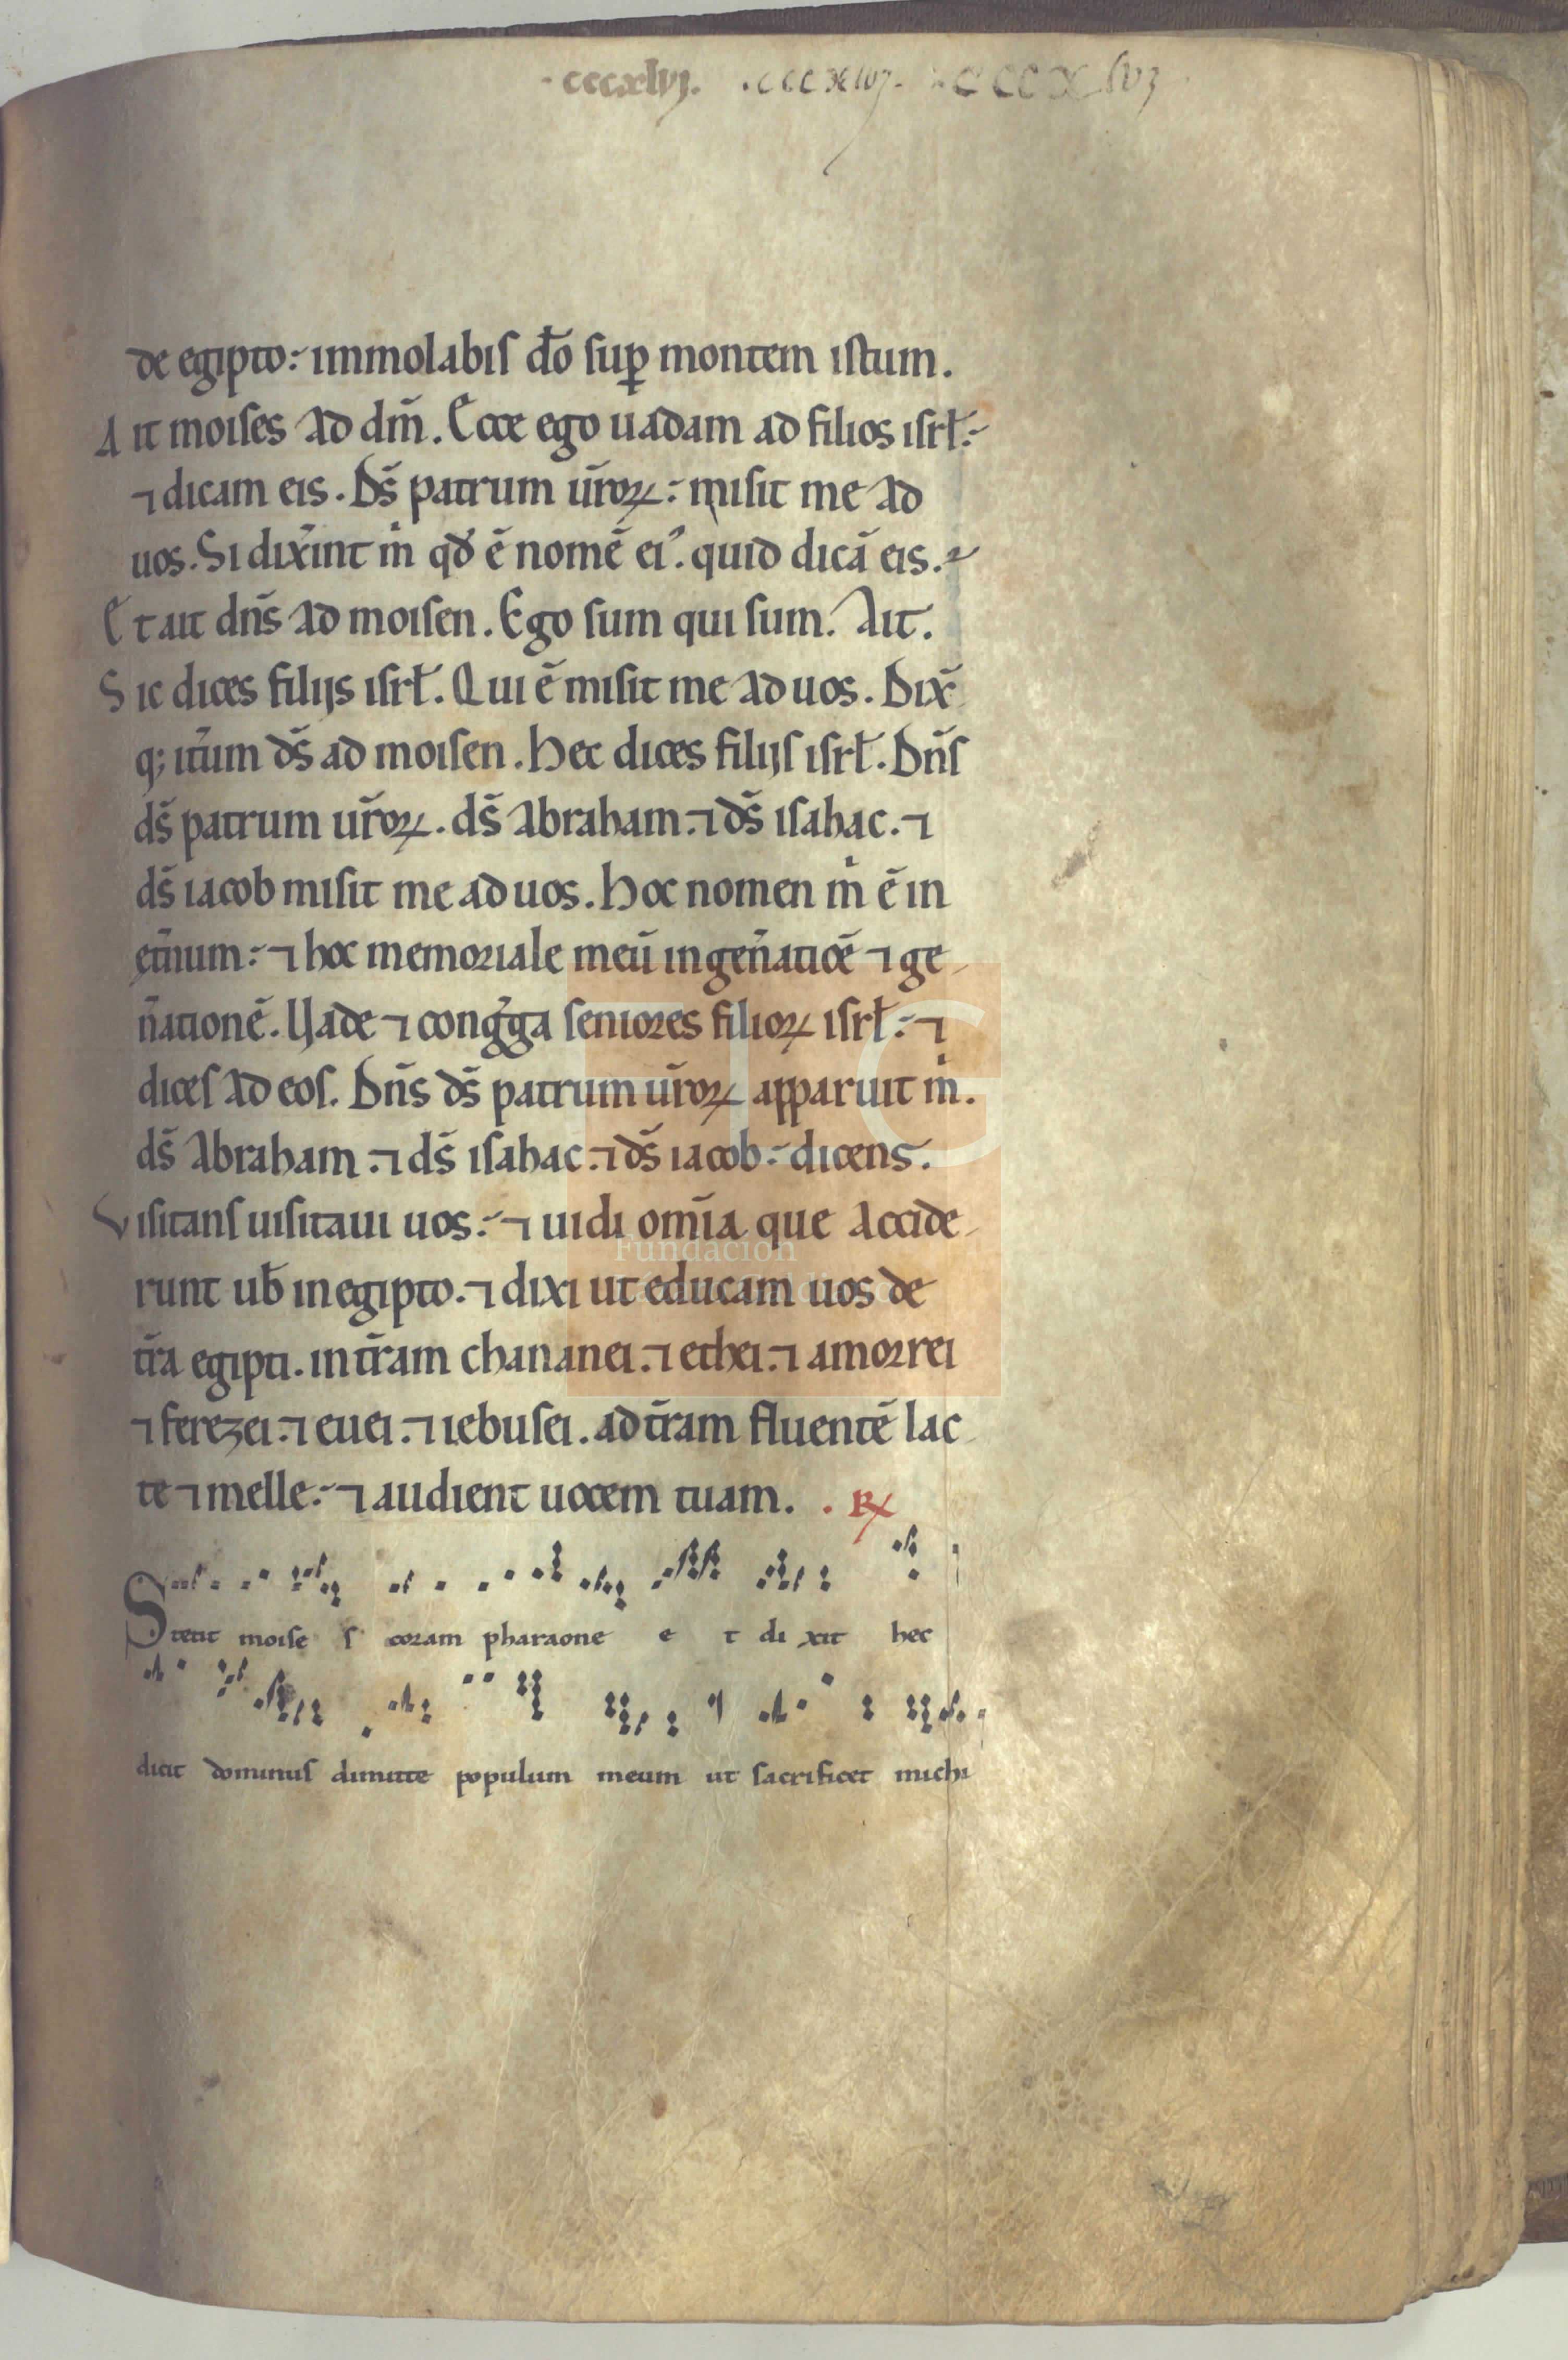 ·cccxlvj. .cccxlvj. cccxlvj
de egipto: immolabis do̅ sup̲ montem istum.
Ait moises ad dm̅. Ecce ego uadam ad filios isrl̅:
⁊ dicam eis. Ds̅ patrum ur̅oꝝ: misit me ad
uos. Si dix̅int m̍ qd̅ e̅ nome̅ eiꝰ. quid dica̅ eis.
Et ait dn̅s ad moisen. Ego sum qui sum. Ait.
Sic dices filijs isrl̅. Qui e̅ misit me ad uos. Dix̅
q; it̅um ds̅ ad moisen. Hec dices filijs isrl̅. Dn̅s
ds̅ patrum ur̅oꝝ. ds̅ abraham. ⁊ ds̅ isahac. ⁊
ds̅ iacob misit me ad uos. Hoc nomen m̍ e̅ in
et̅num: ⁊ hoc memoriale meu̅ in gen̅atioe̅ ⁊ ge
n̅atione̅. Uade ⁊ cong̅ga seniores filioꝝ isrl̅: ⁊
dices ad eos. Dn̅s ds̅ patrum ur̅oꝝ apparuit m̍.
ds̅ abraham. ⁊ ds̅ isahac. ⁊ ds̅ iacob: dicens.
Visitans uisitaui uos: ⁊ uidi om̅ia que accide
runt ub̅ in egipto. ⁊ dixi ut educam uos de
tr̅a egipti. in tr̅am chananei. ⁊ ethei. ⁊ amorrei
⁊ ferezei. ⁊ euei. ⁊ iebusei. ad tr̅am fluente̅ lac
te ⁊ melle: ⁊ audient uocem tuam. . ℞
Stetit moise s coram pharaone e t di xit hec
dicit dominus dimitte populum meum ut sacrificet michi
Fundación